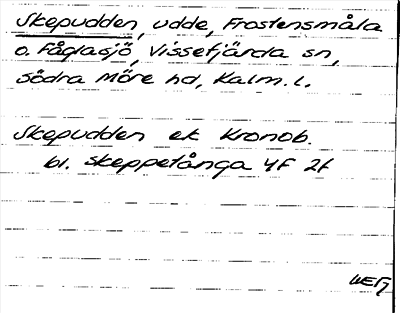 Skepudden, udde, Frostensmåla
o. Fåglasjö, Vissefjärda sn,
Södra Möre hd, Kalm. l.
Skepudden ek Kronob.
bl. Skeppetånga 4f 2f